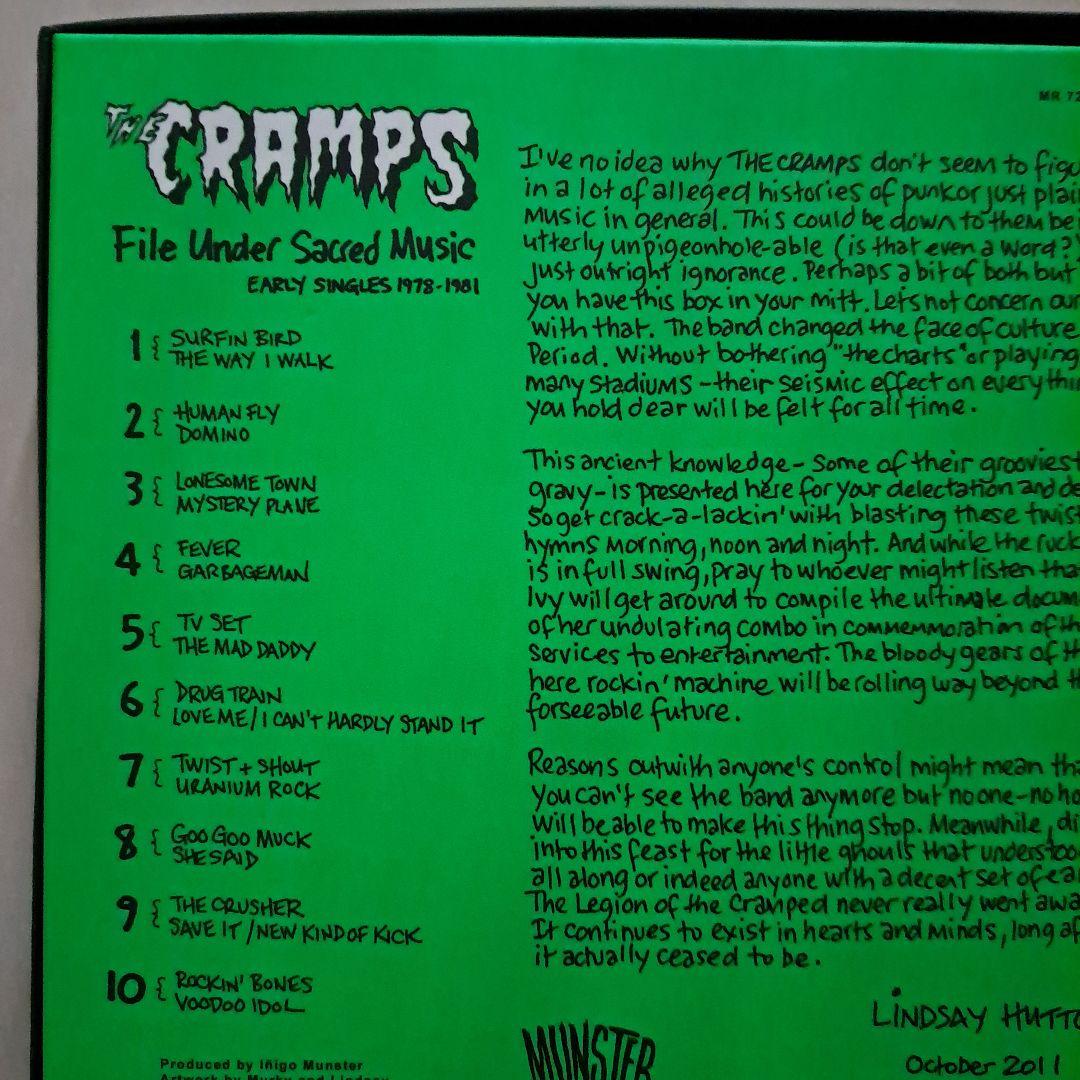 THE CRAMPS
File Under Sacred Music
EARLY SINGLES 1978-1981
1 { SURFIN BIRD
THE WAY I WALK
2 { HUMAN FLY
DOMINO
3 { LONESOME TOWN
MYSTERY PLANE
4 { FEVER
GARBAGEMAN
5 { TV SET
THE MAD DADDY
6 { DRUG TRAIN
LOVE ME / I CAN'T HARDLY STAND IT
7 { TWIST + SHOUT
URANIUM ROCK
8 { GOO GOO MUCK
SHE SAID
9 { THE CRUSHER
SAVE IT / NEW KIND OF KICK
10 { ROCKIN' BONES
VOODOO IDOL
Produced by Iñigo Munster
Artwork by and Lindsay
MR 72
I've no idea why THE CRAMPS don't seem to figu
in a lot of alleged histories of punk or just plai
music in general. This could be down to them be
utterly unpigeonhole-able (is that even a word?)
just outright ignorance. Perhaps a bit of both but
you have this box in your mitt. Lets not concern our
with that. The band changed the face of culture
Period. Without bothering "the charts" or playing
many stadiums - their seismic effect on everythin
you hold dear will be felt for all time.
This ancient knowledge - some of their grooviest
gravy - is presented here for your delectation and de
So get crack-a-lackin' with blasting these twist
hymns morning, noon and night. And while the ruck
is in full swing, pray to whoever might listen tha
Ivy will get around to compile the ultimate docum
of her undulating combo in commemmoration of th
services to entertainment. The bloody gears of th
here rockin' machine will be rolling way beyond th
forseeable future.
Reasons outwith anyone's control might mean tha
you can't see the band anymore but no one - no ho
will be able to make this thing stop. Meanwhile, di
into this feast for the little ghouls that understoo
all along or indeed anyone with a decent set of ea
The Legion of the Cramped never really went awa
It continues to exist in hearts and minds, long af
it actually ceased to be.
LINDSAY HUTTO
October 2011
MUNSTER